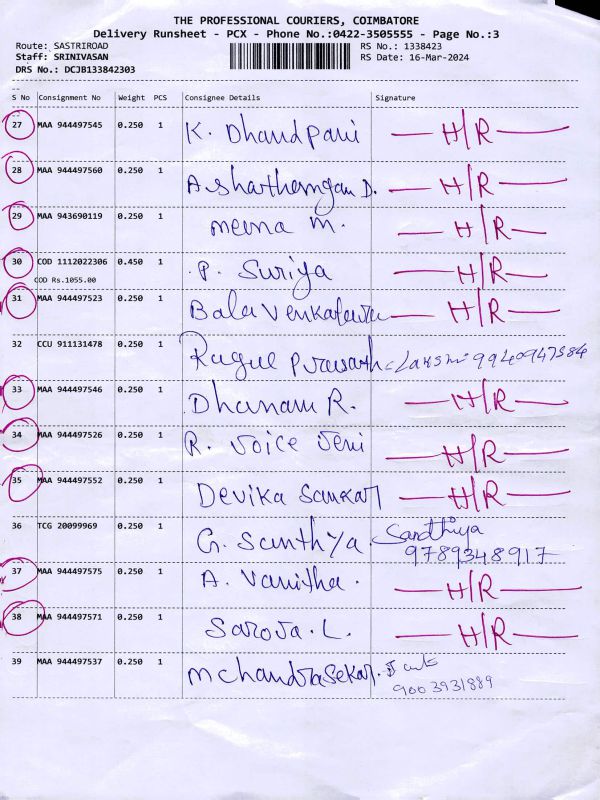 THE PROFESSIONAL COURIERS, COIMBATORE
Delivery Runsheet - PCX - Phone No.:0422-3505555 - Page No.:3
Route: SASTRIROAD RS No.: 1338423
Staff: SRINIVASAN RS Date: 16-Mar-2024
DRS No.: DCJB133842303
S No Consignment No Weight PCS Consignee Details Signature
27 MAA 944497545 0.250 1 K. Dhandpani H/R
28 MAA 944497560 0.250 1 D. H/R
29 MAA 943690119 0.250 1 meena m. H/R
30 COD 1112022306 0.450 1 P. Suriya H/R
COD Rs.1055.00
31 MAA 944497523 0.250 1 Bala H/R
32 CCU 911131478 0.250 1 Ragul Prasath Laxsmi 9940947384
33 MAA 944497546 0.250 1 Dhanam R. H/R
34 MAA 944497526 0.250 1 R. Joice Jeni H/R
35 MAA 944497552 0.250 1 Devika Sankar H/R
36 TCG 20099969 0.250 1 G. Santhya. Sandhiya
9789348917
37 MAA 944497575 0.250 1 A. Vanitha. H/R
38 MAA 944497571 0.250 1 Saroja. L. H/R
39 MAA 944497537 0.250 1 M Chandrasekar.
9003931889